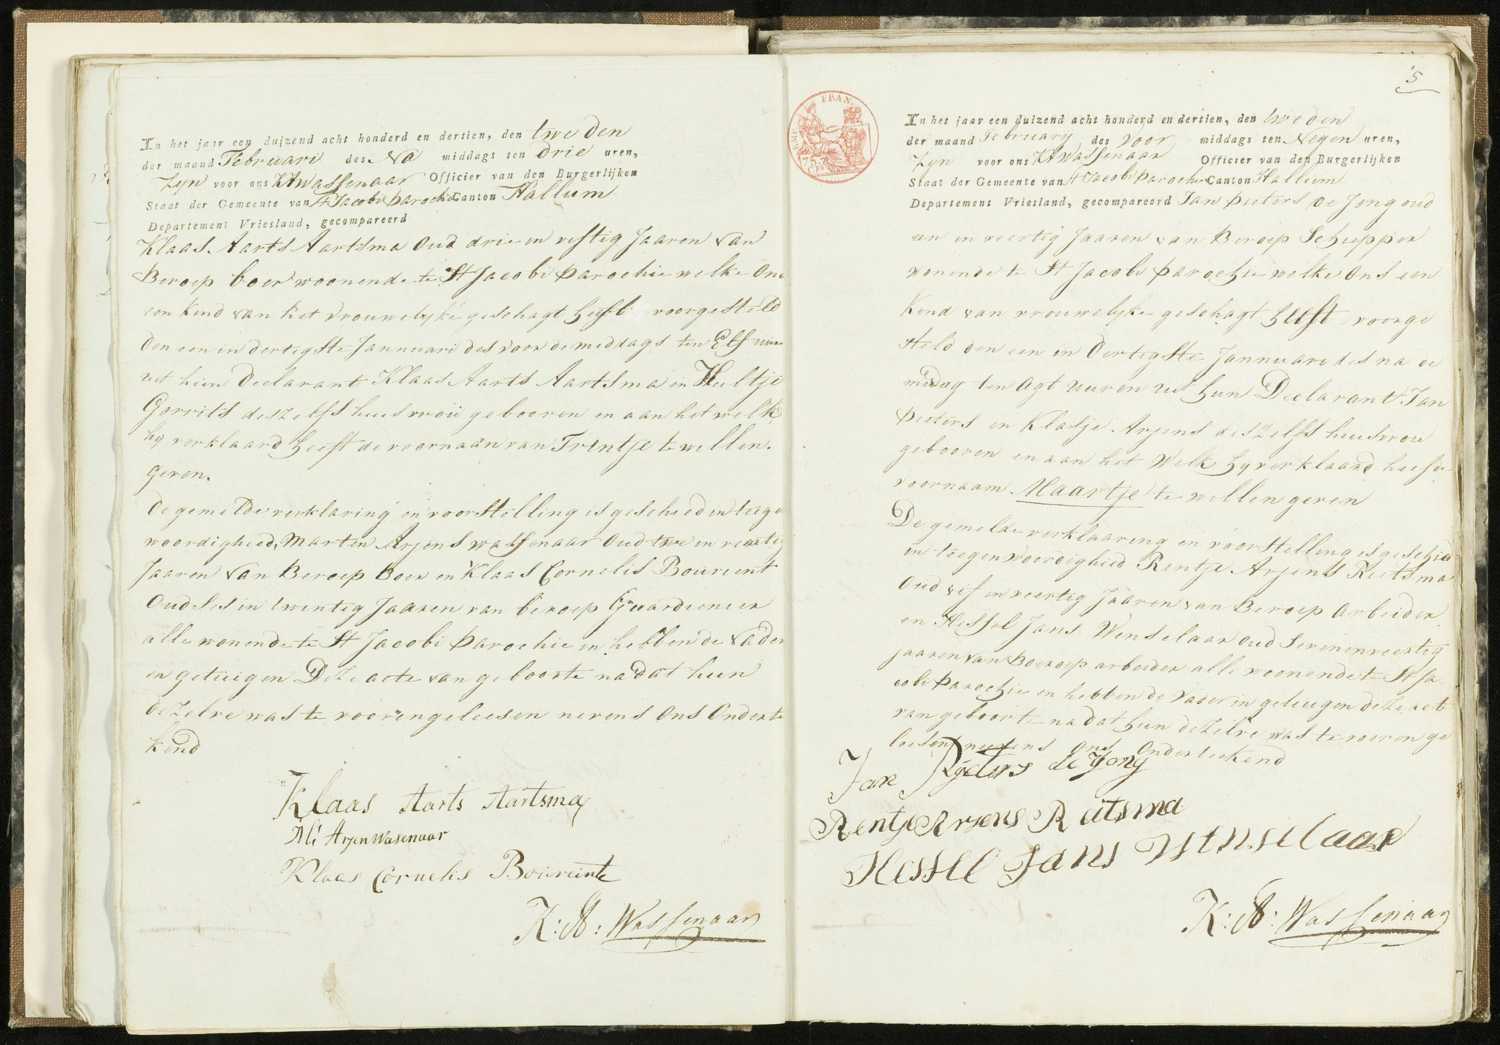 In het jaar een duizend acht honderd en dertien, den twe den
der maand Februari des Na middags ten drie uren,
Zyn voor ons KA Wassenaar Officier van den Burgerlijken
Staat der Gemeente van St Jacobi Parochie Canton Hallum
Departement Vriesland, gecompareerd
Klaas Aarts Aartsma Oud drie en vyftig Jaaren van
Beroep boer woonende te St Jacobi Parochie welke Ons
een Kind van het vrouwelijke geschagt heeft voorgesteld
den een in dertigste Jannuari des voor de middags ten Elf uure
uit hem Declarant Klaas Aarts Aartsma en Hiltje
Gerrits deszelfs huisvrou gebooren en aan het welk
hy verklaard heeft de voornaam van Trintje te willen
geven.
de gemelde verklaring en voorstelling is geschied in teege
woordigheid, Marten Arjens Wassenaar Oud twe en veertig
Jaaren van Beroep Boer en Klaas Cornelis Bourient
Oud ses in twintig Jaaren van beroep Guardenier
alle wonende te St Jacobi Parochie en hebben de vader
en getuigen Deze acte van geboorte na dat hun
dezelve was te voorengeleesen nevens Ons Onderte
kend
Klaas Aarts Aartsma
Mt Arjen Wasenaar
Klaas Cornelis Boiereinte
K: A: Wassenaar
5
FRAN
In het jaar een duizend acht honderd en dertien, den tweden
der maand February des Voor middags ten Negen uren,
Zyn voor ons KA Wassenaar Officier van den Burgerlijken
Staat der Gemeente van St Jacobi Parochie Canton Hallum
Departement Vriesland, gecompareerd Jan Pieters de Jong oud
en in veertig Jaaren van Beroep Schipper
wonende te St Jacobi Parochie welke Ons een
Kend van vrouwelijke geschagt heeft voorge
steld den een in Dertigste Jannuari des na de
middag ten Agt uuren uit hun Declarant Jan
Pieters en Klasje Arjens deszelfs huisvrou
gebooren en aan het Welk hy verklaard heeft
voornaam Maartje te willen geven
De gemelde verklaaring en voorstelling is geschied
in teegenwoordigheid Rentje Arjens Reitsma
Oud vif en veertig Jaaren van Beroep Arbeider
en Hessel Jans Wenselaar Oud Seven en veertig
jaaren van Beroep arbeider alle woonende te St Ja
cobi Parochie en hebben de vader en getuigen deze act
van geboorte na dat hun dezelve was te vooren ge
leesen nevens Ons Onderteekend
Jan Pyeters de Jong
Rentje Arjens Reitsma
Hessel Jans Wenselaar
K: A: Wassenaar